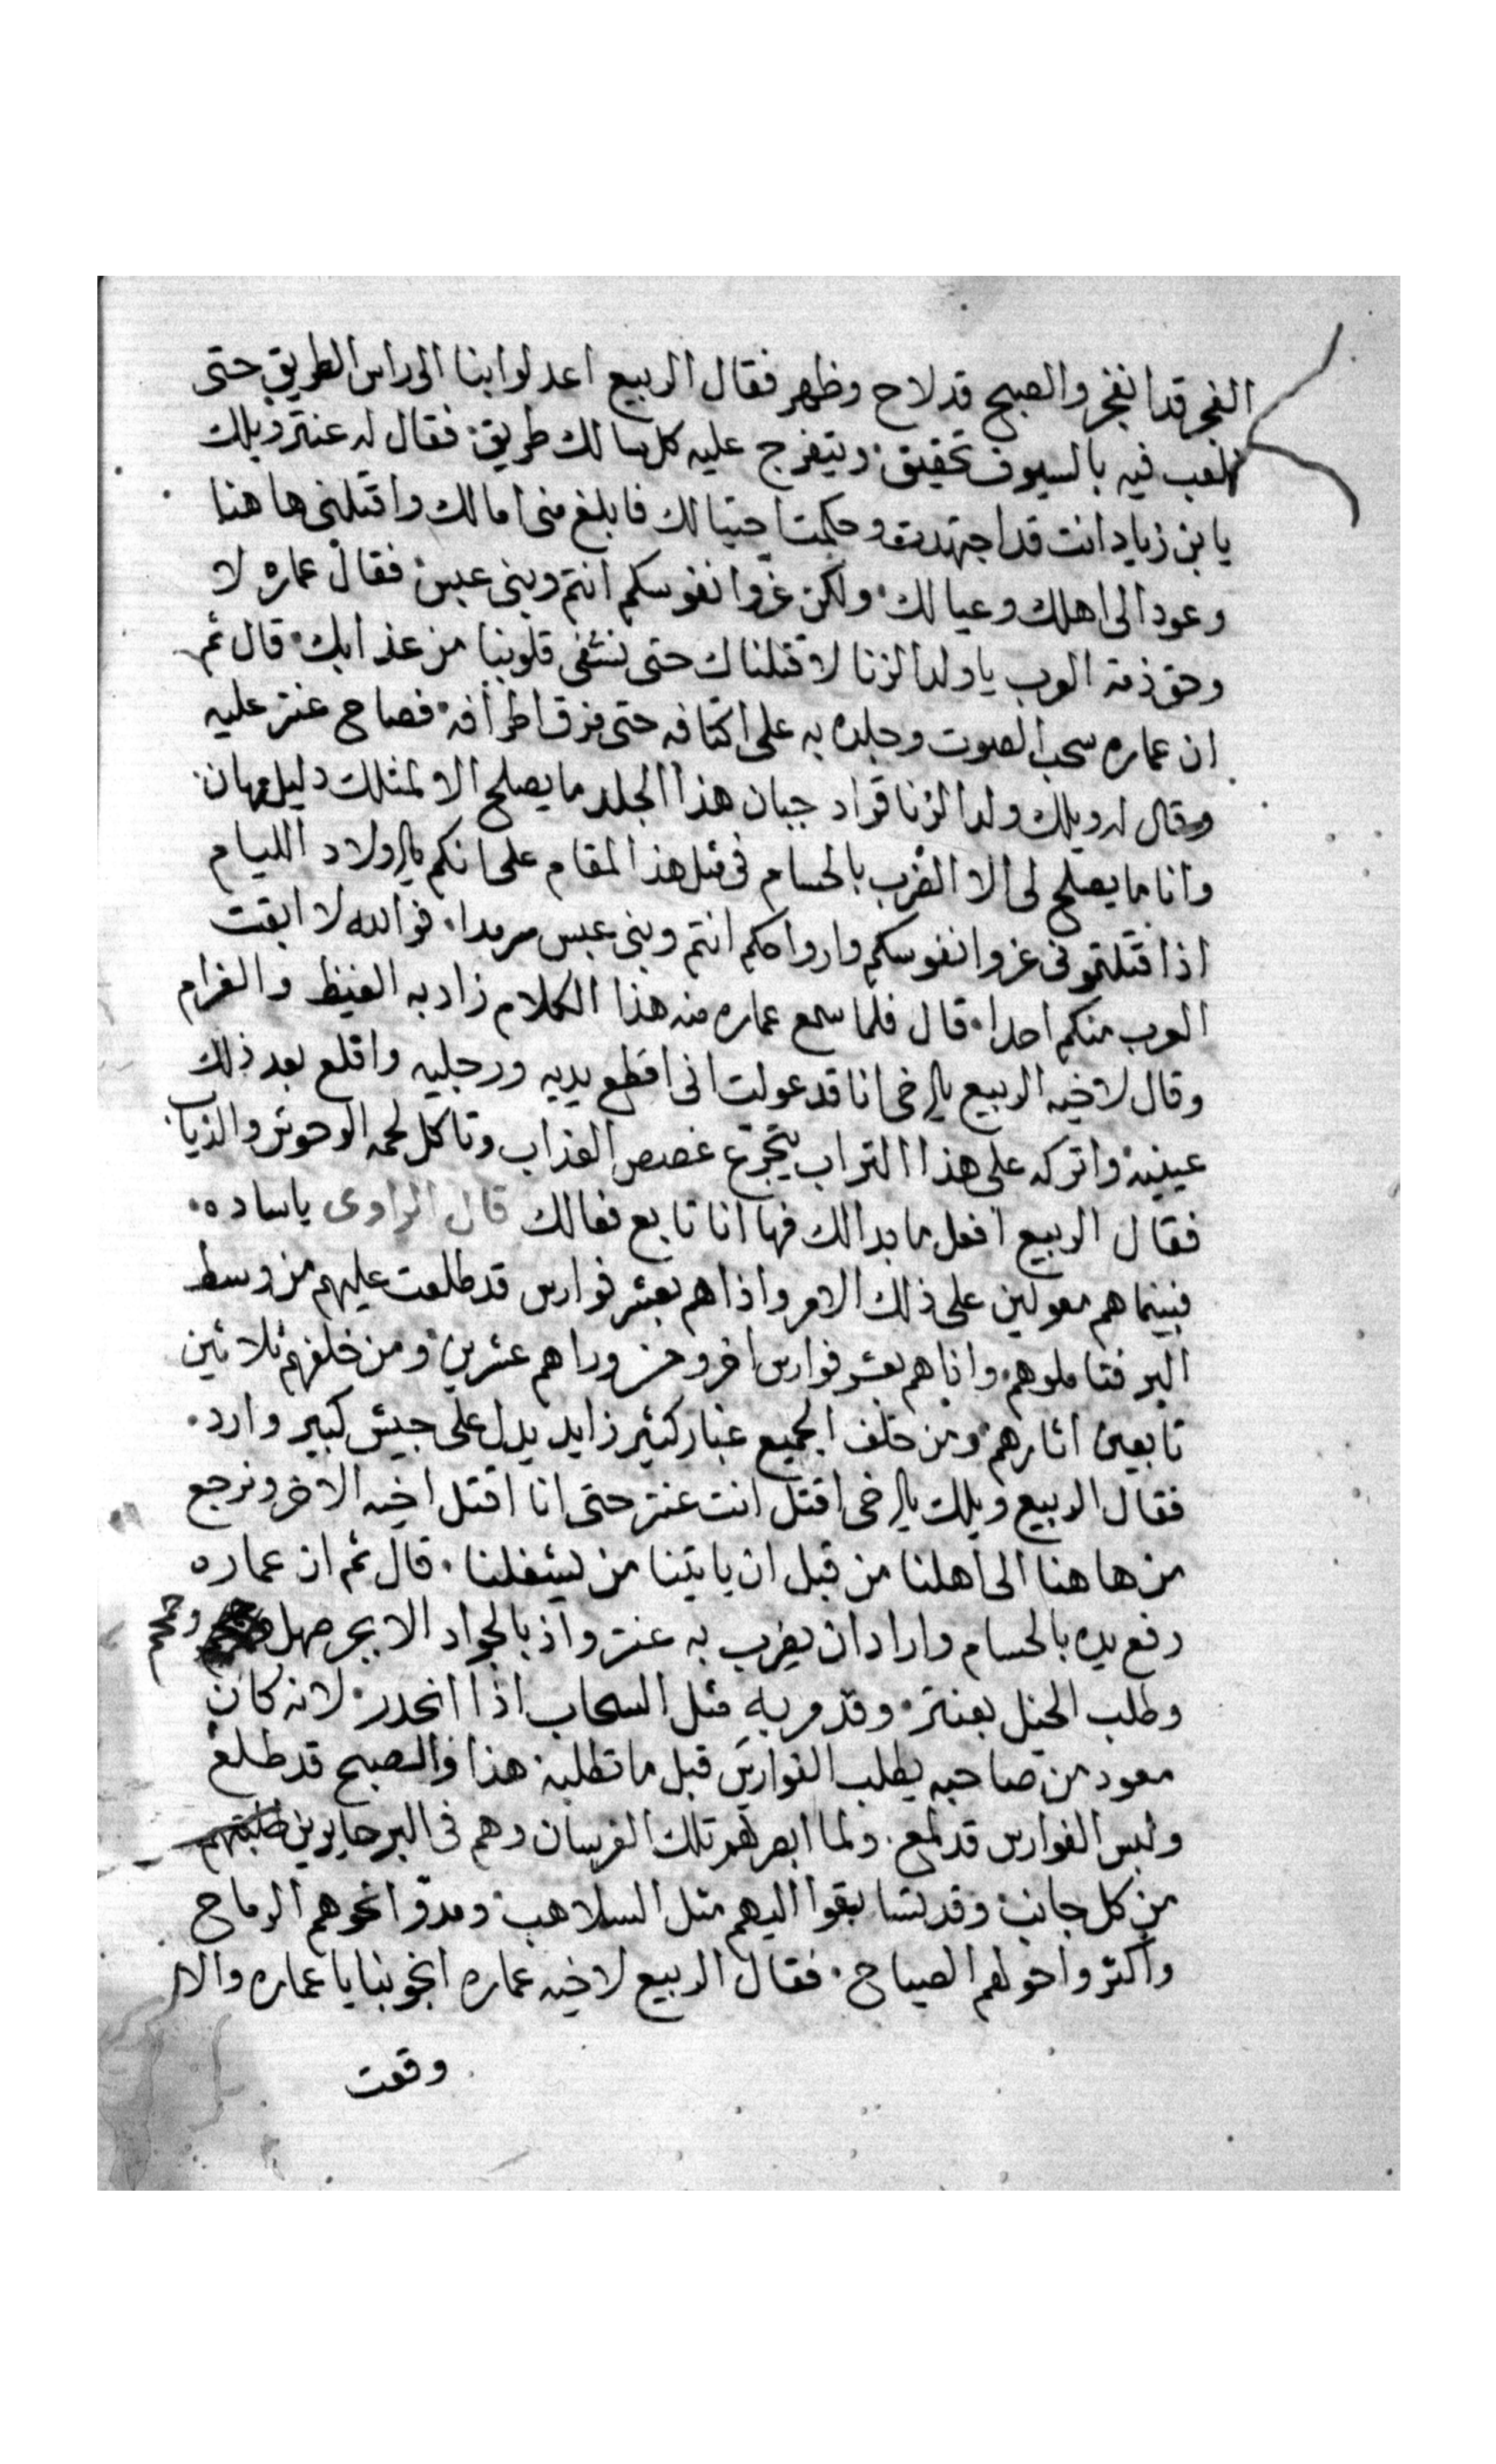 الفجر قد انفجر والصبح قد لاح وظهر فقال الربيع اعدلوا بنا الى راس الطريق حتى
نلعب فيه بالسيوف تحقيق ويتفرج عليه كل سالك طريق فقال له عنتر ويلك
يا بن زياد انت قد اجتهدت وحكمت احتيالك فابلغ منى امالك واقتلنى ها هنا
وعود الى اهلك وعيالك ولكن عزوا نفوسكم انتم وبنى عبس فقال عماره لا
وحق ذمة العرب يا ولد الزنا لا قتلناك حتى نشفى قلوبنا من عذابك قال ثم
ان عماره سحب الصوت وجلده به على اكتافه حتى مزق اطرافه فصاح عنتر عليه
وقال له ويلك ولد الزنا قواد جبان هذا الجلد ما يصلح الا لمثلك دليل مهان
وانا ما يصلح لى الا الضرب بالحسام فى مثل هذا المقام على انكم يا اولاد الليام
اذا قتلتمونى عزوا نفوسكم وارواحكم انتم وبنى عبس سرمدا فوالله لا ابقت
العرب منكم احدا قال فلما سمع عماره منه هذا الكلام زاد به الغيظ والغرام
وقال لاخيه الربيع يا اخى انا قد عولت انى اقطع يديه ورجليه واقلع بعد ذلك
عينيه واتركه على هذا التراب يتجرع غصص العذاب وتاكل لحمه الوحوش والذياب
فقال الربيع افعل ما بدالك فها انا تابع فعالك قال الراوى ياساده
فبينما هم معولين على ذلك الامر واذا هم بعشر فوارس قد طلعت عليهم من وسط
البر فتاملوهم واذا هم بعشر فوارس اخر ومن وراهم عشرين ومن خلفهم ثلاثين
تابعين اثارهم ومن خلف الجميع غبار كثير زايد يدل على جيش كبير وارد
فقال الربيع ويلك يا اخى اقتل انت عنتر حتى انا اقتل اخيه الاخر ونرجع
من ها هنا الى اهلنا من قبل ان ياتينا من يشغلنا قال ثم ان عماره
رفع يده بالحسام واراد ان يضرب به عنتر واذ بالجواد الابجر صهل وحمحم
وطلب الخيل بعنتر وقد مر به مثل السحاب اذا انحدر لانه كان
معود من صاحبه يطلب الفوارس قبل ما تطلبه هذا والصبح قد طلع
ولبس الفوارس قد لمع ولما ابصرهم تلك الفرسان وهم فى البر حايرين طلبتهم
من كل جانب وقد تسابقوا اليهم مثل السلاهب ومدوا نحوهم الرماح
واكثروا حولهم الصياح فقال الربيع لاخيه عماره انجو بنا يا عماره والا
وقعت